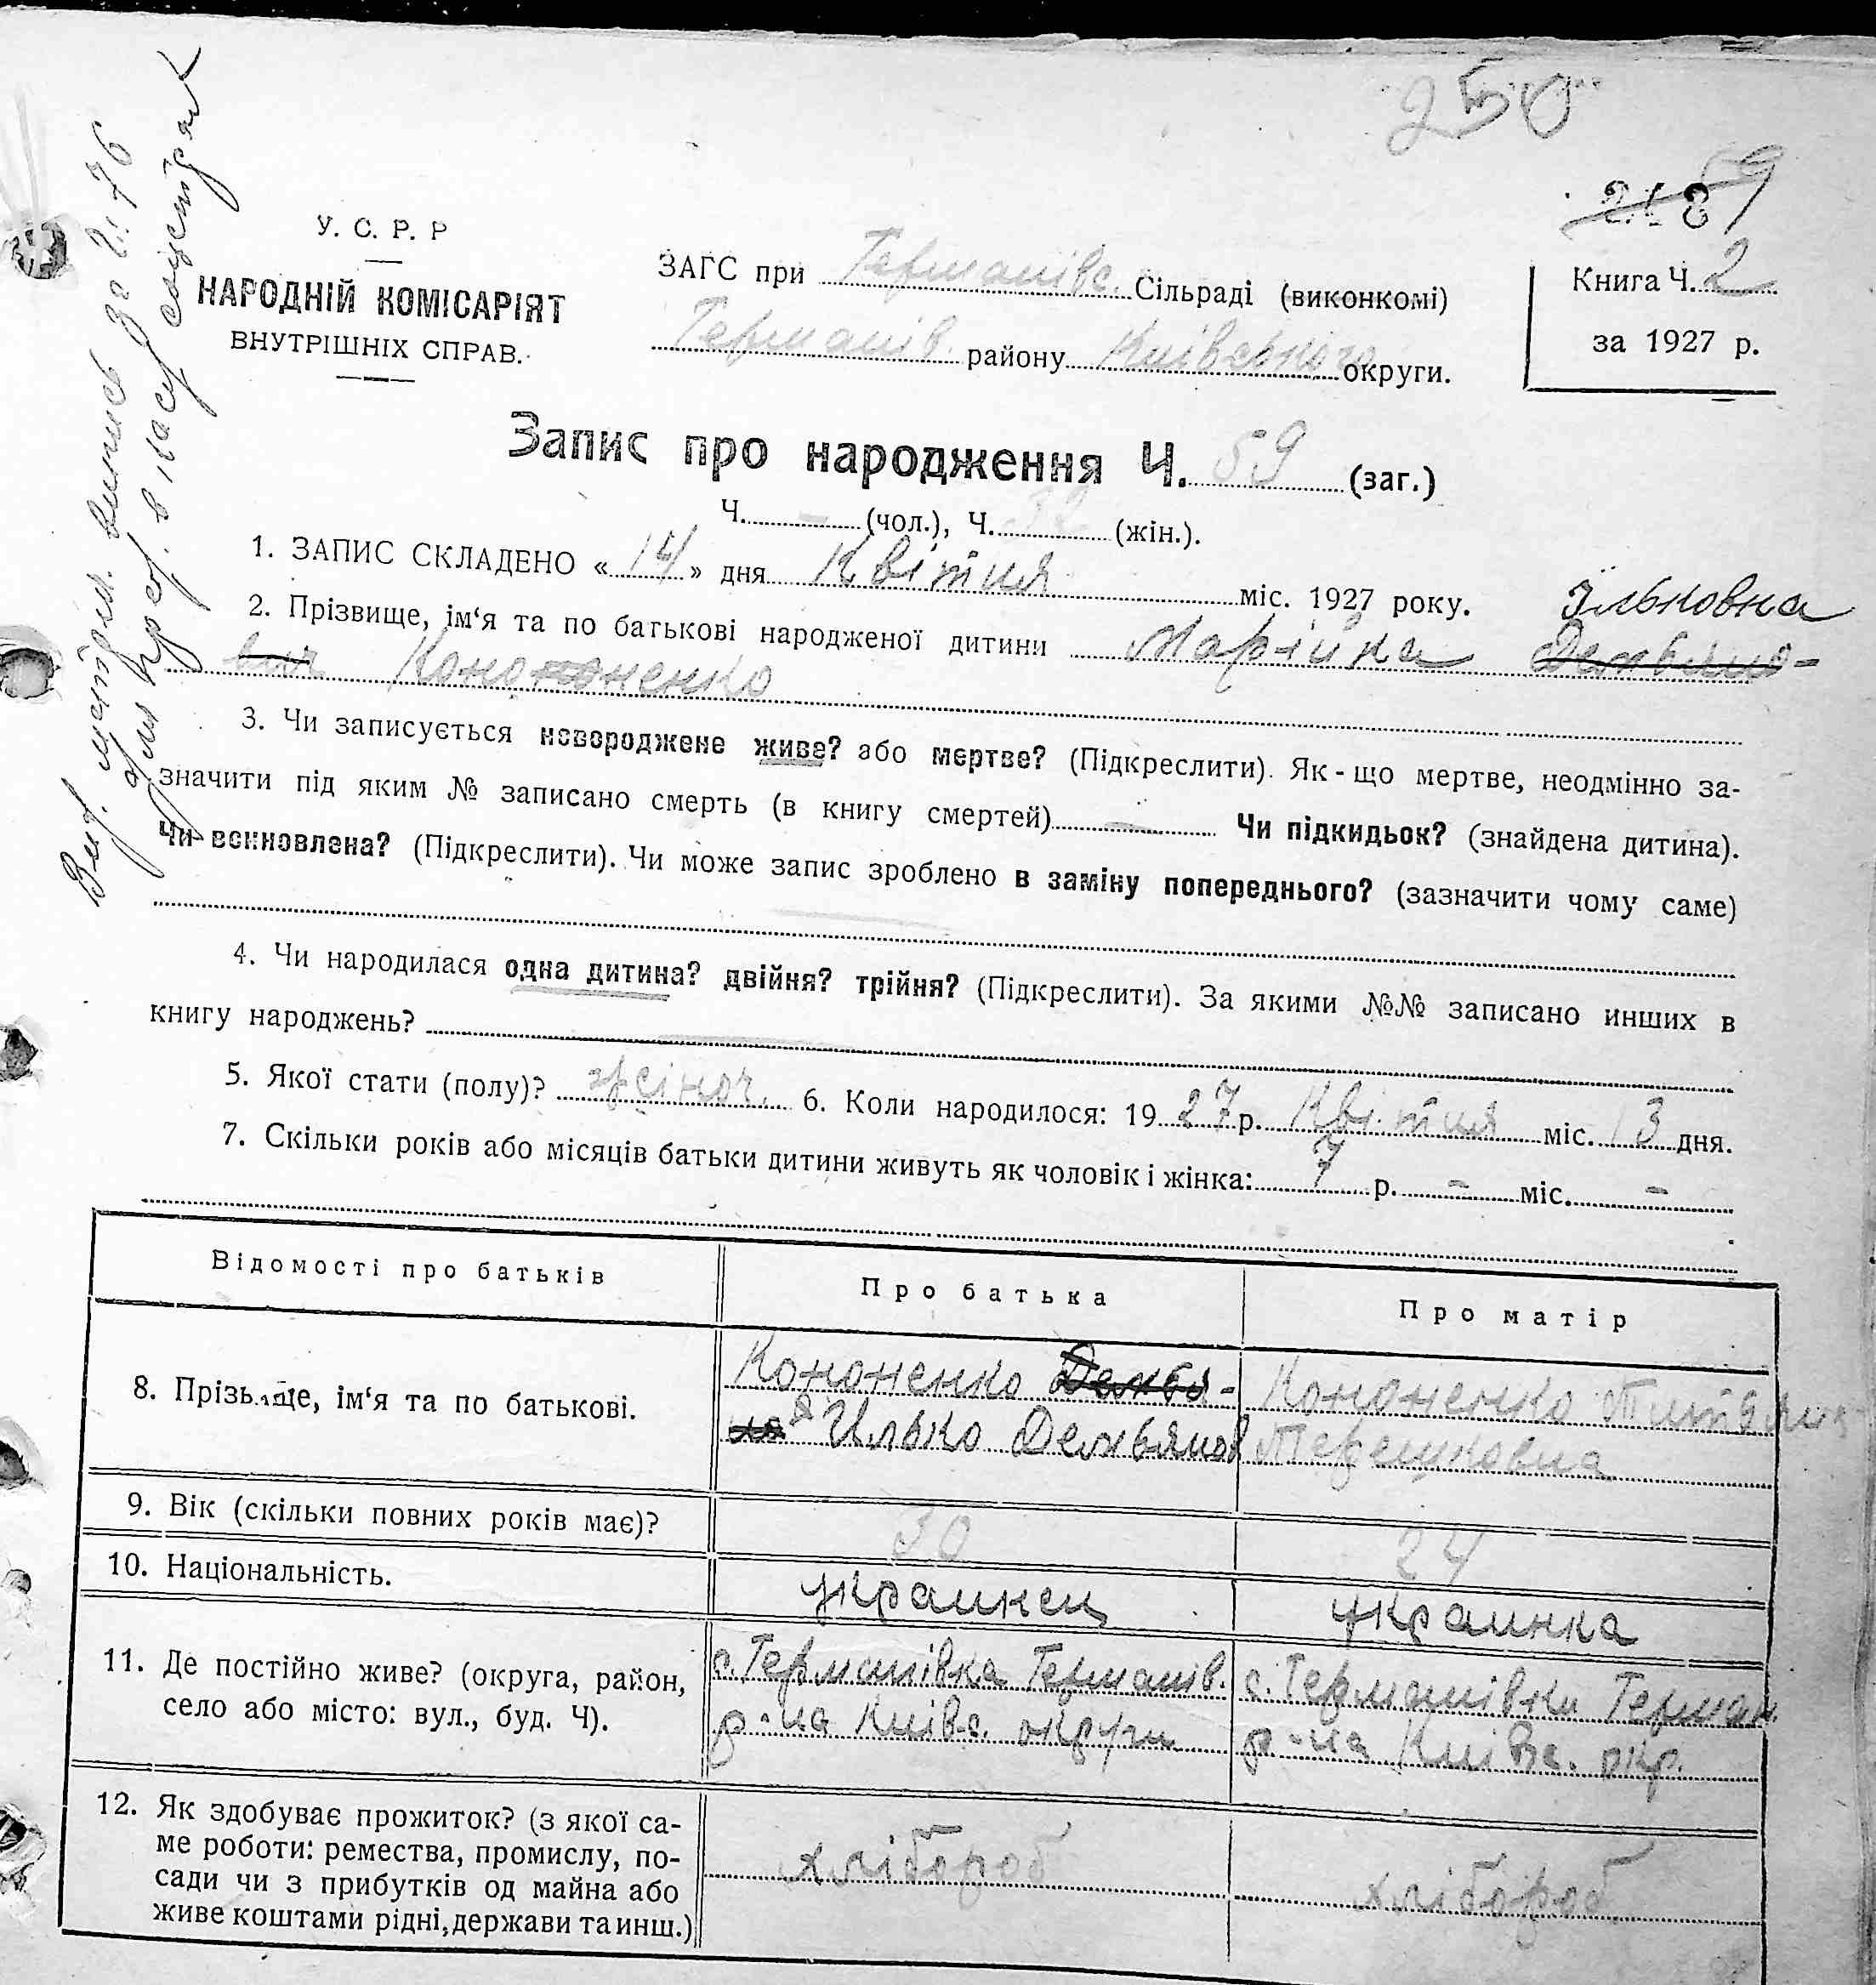 250
59
218
У. С. Р. Р
НАРОДНІЙ КОМІСАРІЯТ
ВНУТРІШНІХ СПРАВ.
ЗАГС при Германівс. Сільраді (виконкомі)
Германів. району Київського округи.
Книга Ч. 2
за 1927 р.
Запис про народження Ч. 59 (заг.)
Ч. – (чол.), Ч. 32 (жін.).
1. ЗАПИС СКЛАДЕНО « 14 » дня Квітня міс. 1927 року.
Ільковна
2. Прізвище, ім‘я та по батькові народженої дитини Марійка Демьяно-
вна Кононенко
3. Чи записується новороджене живе? або мертве? (Підкреслити). Як - що мертве, неодмінно за-
значити під яким № записано смерть (в книгу смертей) — Чи підкидьок? (знайдена дитина).
Чи всиновлена? (Підкреслити). Чи може запис зроблено в заміну попереднього? (зазначити чому саме)
4. Чи народилася одна дитина? двійня? трійня? (Підкреслити). За якими №№ записано инших в
книгу народжень?
5. Якої стати (полу)? жіноч. 6. Коли народилося: 19 27 р. Квітня міс. 13 дня.
7. Скільки років або місяців батьки дитини живуть як чоловік і жінка: 7 р. – міс. –
Відомості про батьків Про батька Про матір
8. Прізьвище, ім‘я та по батькові.
Кононенко Демья-
на Илько Демьянов
Кононенко Титяна
Терешковна
9. Вік (скільки повних років має)? 30 24
10. Національність. украинец украинка
11. Де постійно живе? (округа, район,
село або місто: вул., буд. Ч).
с. Германівка Германів.
р-на Київс. округи
с. Германівки Герман.
р-на Київс. окр.
12. Як здобуває прожиток? (з якої са-
ме роботи: ремества, промислу, по-
сади чи з прибутків од майна або
живе коштами рідні, держави та инш.)
хлібороб
хлібороб